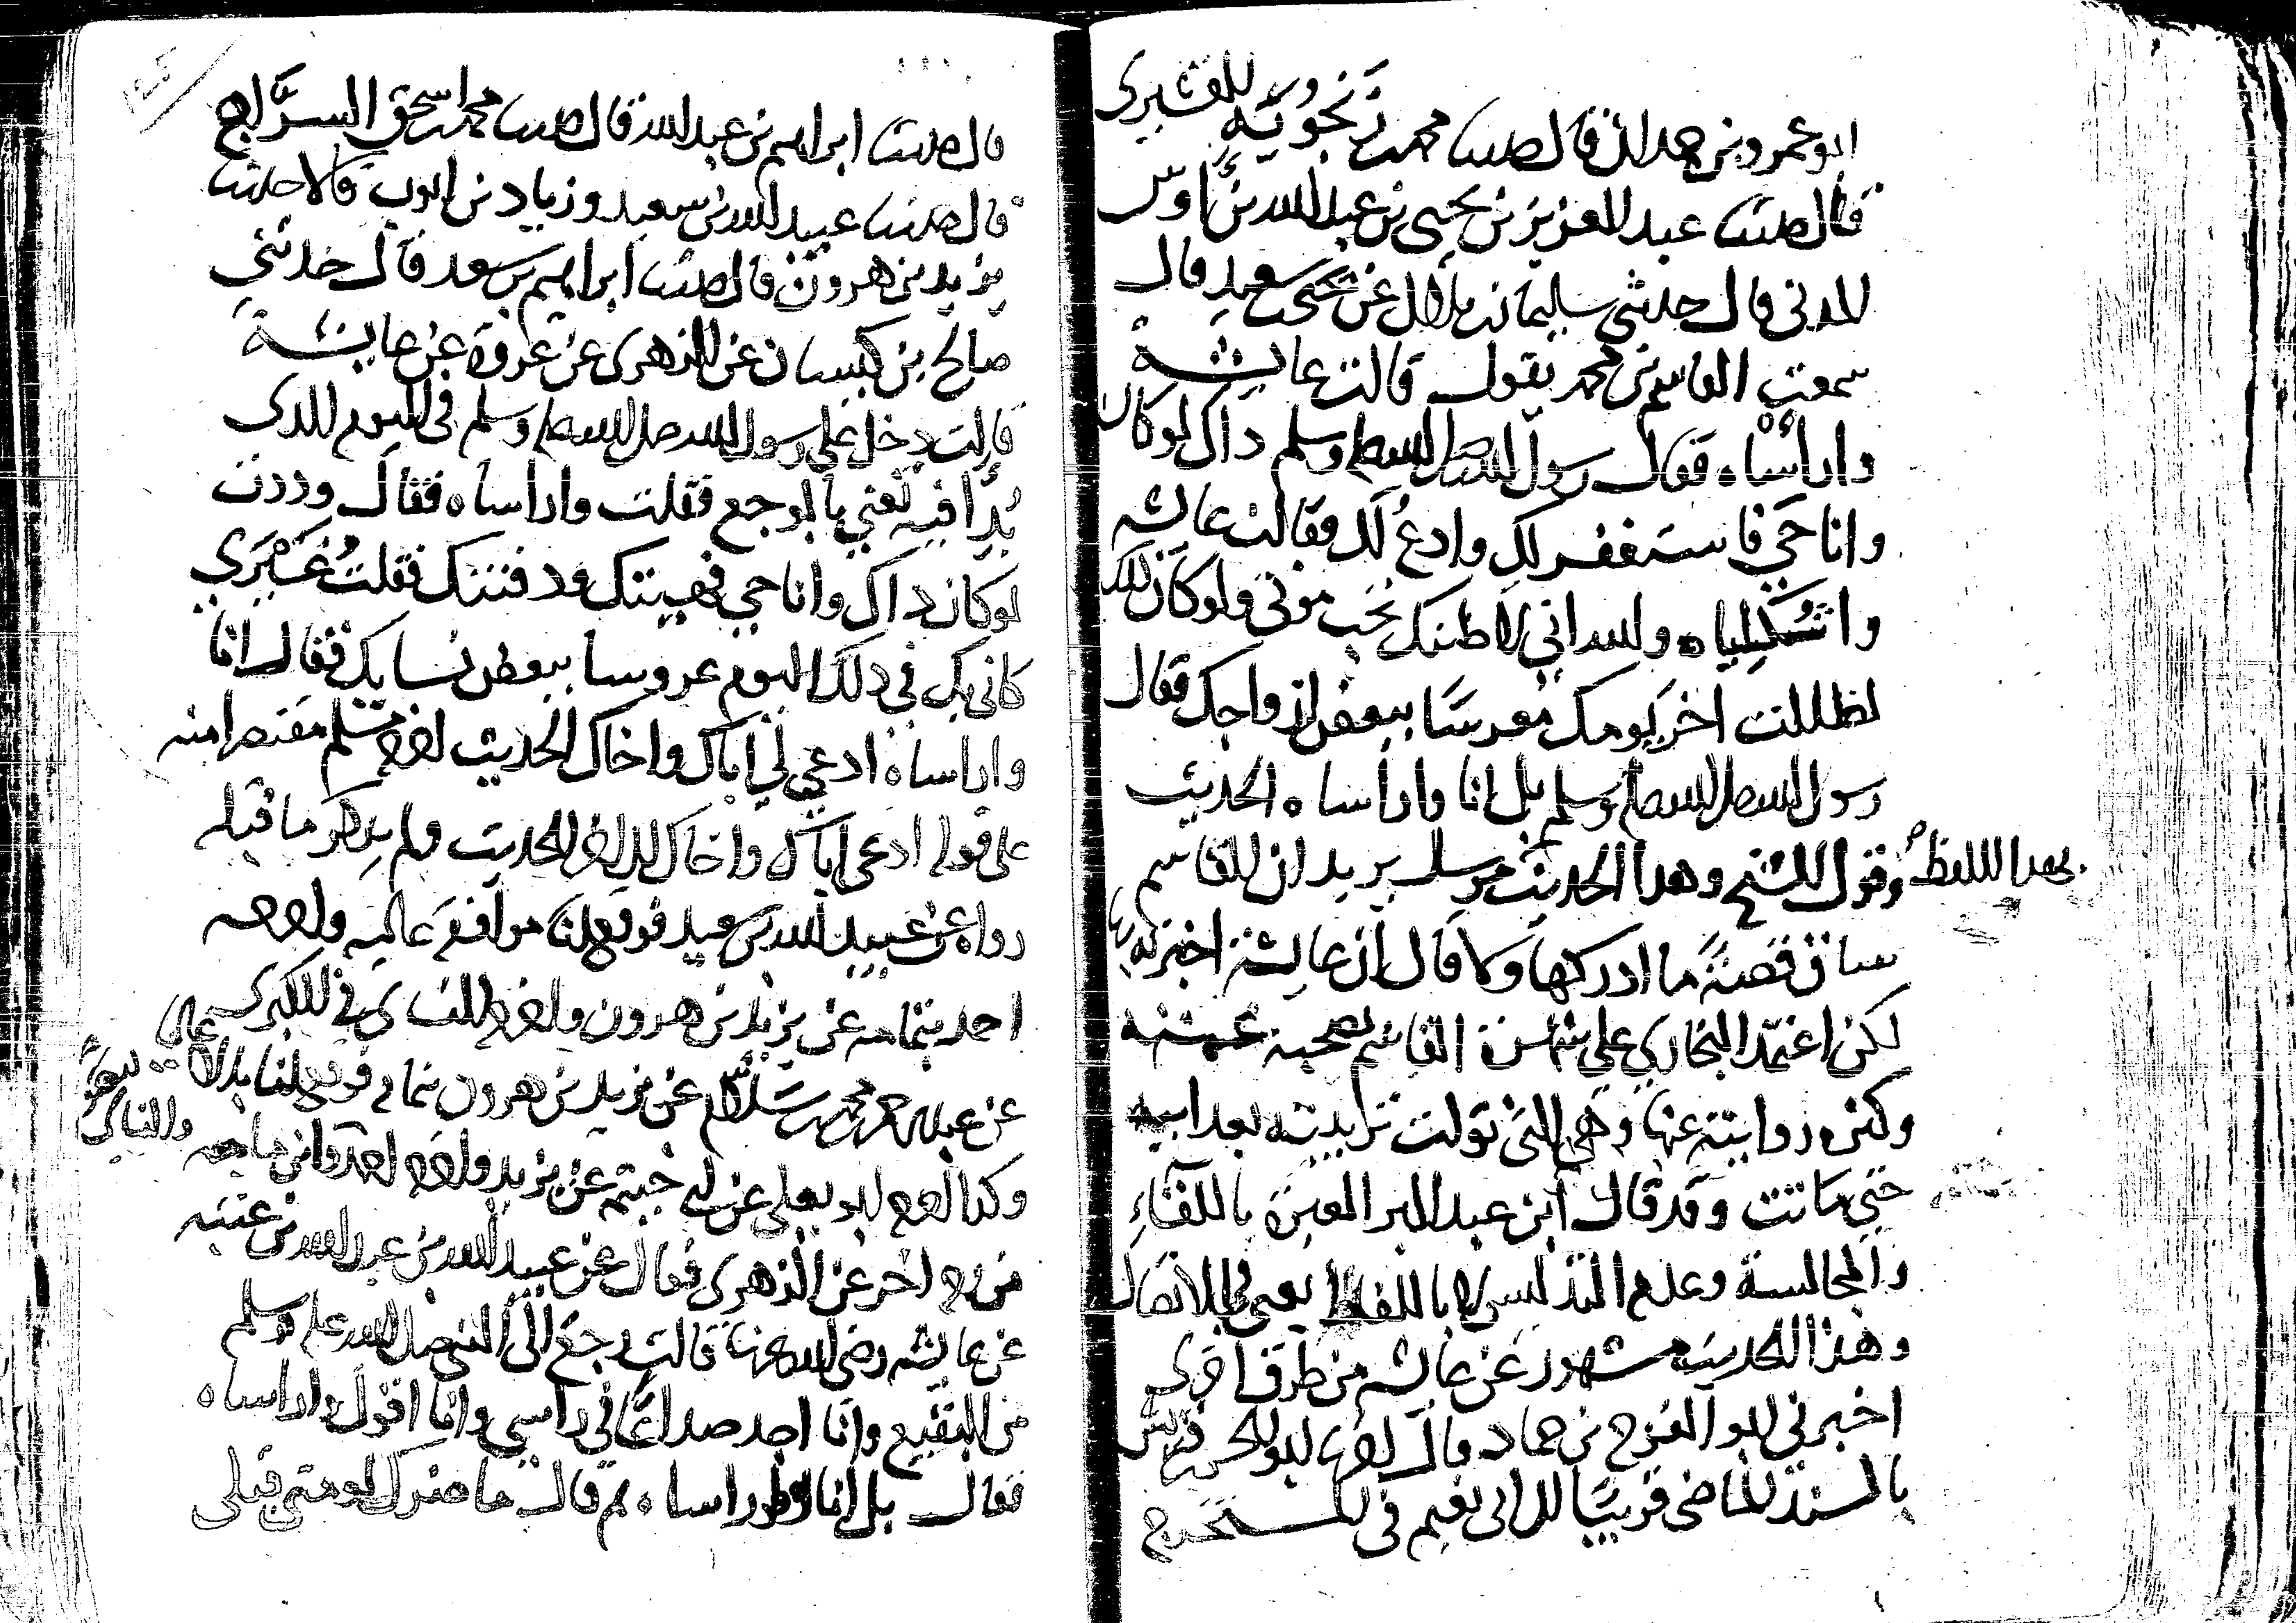 ابو عمرو بن حمدان قال حدثنا محمد بن زنجويه القشيري
قال حدثنا عبد العزيز بن يحيى بن عبد الله بن اويس
المدني قال حدثني سليمان بن بلال عن يحيى بن سعيد قال
سمعت القاسم بن محمد يقول قالت عايشة
واراساه فقال رسول الله صلى الله عليه وسلم ذاك لو كان
وانا حي فاستغفر لك وادعو لك فقالت عايشة
واثكلياه والله اني لاظنك تحب موتي ولو كان ذلك
لظللت اخر يومك معرسا ببعض ازواجك فقال
رسول الله صلى الله عليه وسلم بل انا واراساه الحديث
بهذا اللفظ وقول الشيخ وهذا الحديث مرسل يريد ان القاسم
ساق قصة ما ادركها ولا قال ان عايشة اخبرته بها
لكن اعتمد البخاري على شهرة القاسم بصحبة عمته
وكثرة روايته عنها وهي التي تولت تربيته بعد ابيه
حتى ماتت وقد قال ابن عبد البر العبرة باللقاء
والمجالسة وعدم التدليس لا بالالفاظ يعني في الاتصال
وهذا الحديث مشهور عن عايشة من طرق اخرى
اخبرني ابو الفرج بن حماد قال ابو الحسن بن قريش
بالسند الماضي قريبا الى ابي نعيم في المستخرج
قال حدثنا ابراهيم بن عبد الله قال حدثنا محمد بن اسحق السراج
قال حدثنا عبيد الله بن سعيد وزياد بن ايوب قالا حدثنا
يزيد بن هرون قال حدثنا ابراهيم بن سعد قال حدثني
صالح بن كيسان عن الزهري عن عروة عن عايشة
قالت دخل علي رسول الله صلى الله عليه وسلم في اليوم الذي
بدا فيه تعني بالوجع فقلت واراساه فقال وددت
لو كان ذاك وانا حي فهيئتك ودفنتك فقلت غيرى
كاني بك في ذلك اليوم عروسا ببعض نسايك فقال انا
واراساه ادعي لي اباك واخاك الحديث اخرجه مسلم مقتصرا منه
على قوله ادعي اباك واخاك الى اخر الحديث ولم يذكر ما قبله
رواه عن عبيد الله بن سعيد فوقع لنا موافقة عالية واخرجه
احمد بتمامه عن يزيد بن هرون واخرجه النساي في الكبرى
عن عبد الرحمن بن محمد بن سلام عن يزيد بن هرون بتمامه فوقع لنا بدلا عاليا
وكذا اخرجه ابو يعلى عن ابي خيثمة عن يزيد واخرجه احمد وابن ماجه والنساي
من وجه اخر عن الزهري فقال عن عبيد الله بن عبد الله بن عتبة
عن عايشة رضي الله عنها قالت رجع الي النبي صلى الله عليه وسلم
من البقيع وانا اجد صداعا في راسي وانا اقول واراساه
فقال بل انا واراساه ثم قال ما ضرك لو مت قبلي